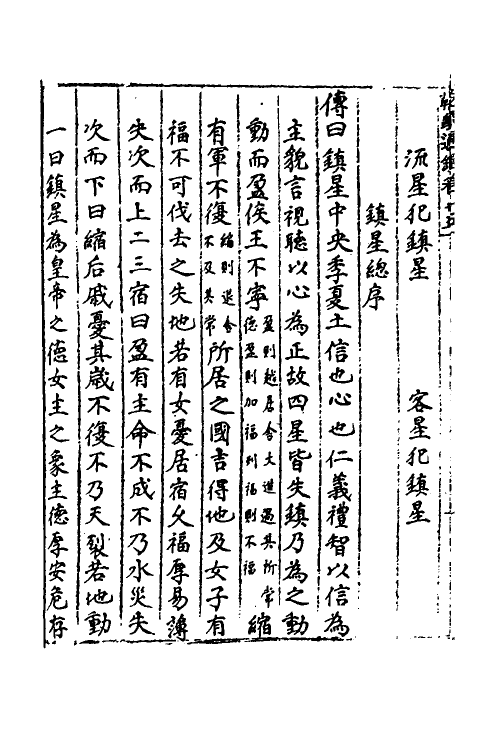 流星犯鎮星　客星犯鎮星
鎮星總序
傳曰鎮星中央季夏土信也心也仁義禮智以信為
主貌言視聽以心為正故四星皆失鎮乃為之動
動而盈侯王不寧盈則越居舍大進過其所常德盈則加福刑福則不福縮
有軍不復縮則退舍不及其常所居之國吉得地及女子有
福不可伐去之失地若有女憂居宿久福厚易薄
失次而上二三宿曰盈有主命不成不乃水災失
次而下曰縮后戚憂其歲不復不乃天裂若地動
一曰鎮星為皇帝之德女主之象主德厚安危存